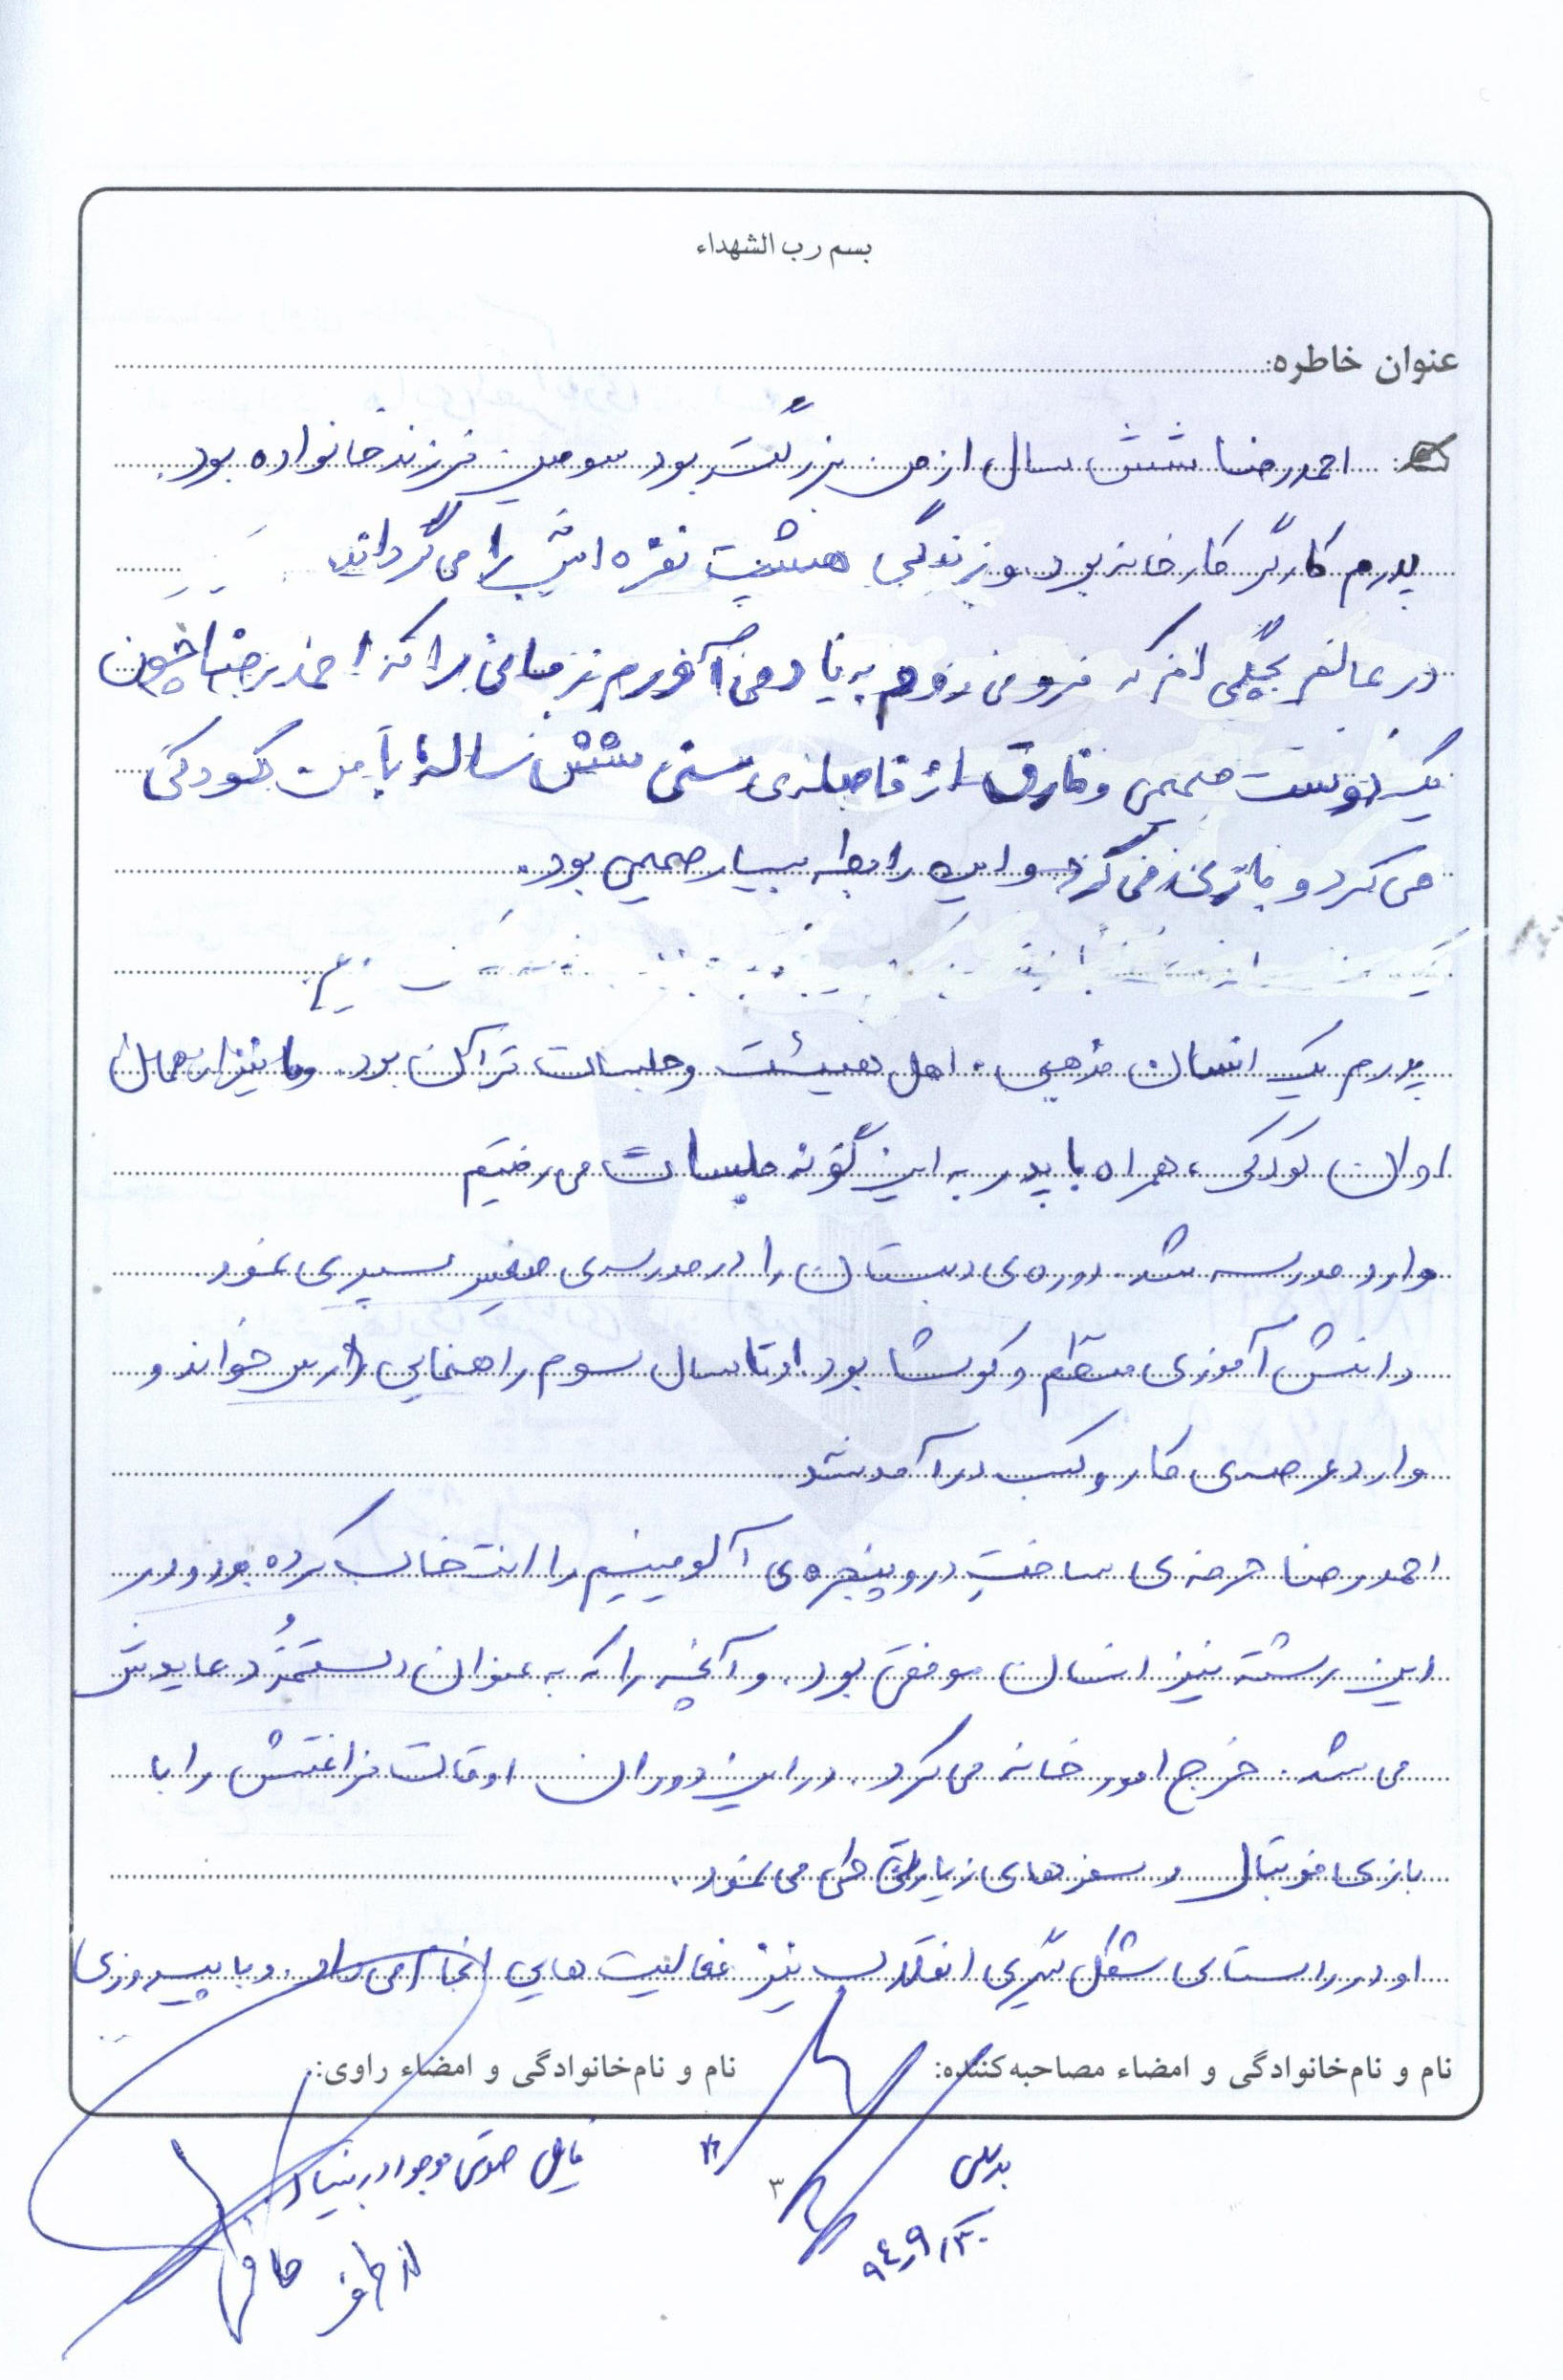 بسم رب الشهداء
عنوان خاطره:
احمدرضا شش سال از من بزرگتر بود سومین فرزند خانواده بود.
پدرم کارگر کارخانه بود و زندگی هشت نفره اش را می گرداند
در عالم بچگی ام که فرو می روم به یاد می آورم زمانی را که احمدرضا چون
یک دوست صمیمی و فارق از فاصله ی سنی شش ساله با من کودکی
می کرد و بازی می کرد و این رابطه بسیار صمیمی بود.
پدرم یک انسان مذهبی، اهل هیئت و جلسات قرآن بود. و ما نیز از همان
اوان کودکی، همراه با پدر به این گونه جلسات می رفتیم
وارد مدرسه شد. دوره ی دبستان را در مدرسه ی صغیر سپری نمود
دانش آموزی منظم و کوشا بود. او تا سال سوم راهنمایی درس خواند و
وارد عرصه ی کار و کسب درآمد شد
احمدرضا حرفه ی ساخت در و پنجره ی آلومینیم را انتخاب کرده بود و در
این رشته نیز انسان موفقی بود. و آنچه را که به عنوان دستمزد عایدش
می شد. خرج امور خانه می کرد. در این دوران اوقات فراغتش را با
بازی فوتبال و سفرهای زیارتی طی می نمود.
او در راستای شکل گیری انقلاب نیز فعالیت هایی انجام می داد. و با پیروزی
نام و نام‌خانوادگی و امضاء مصاحبه‌کننده: نام و نام‌خانوادگی و امضاء راوی:
فایل صوتی موجود در بنیاد
۳
۹۴/۹/۳۰
از طرف